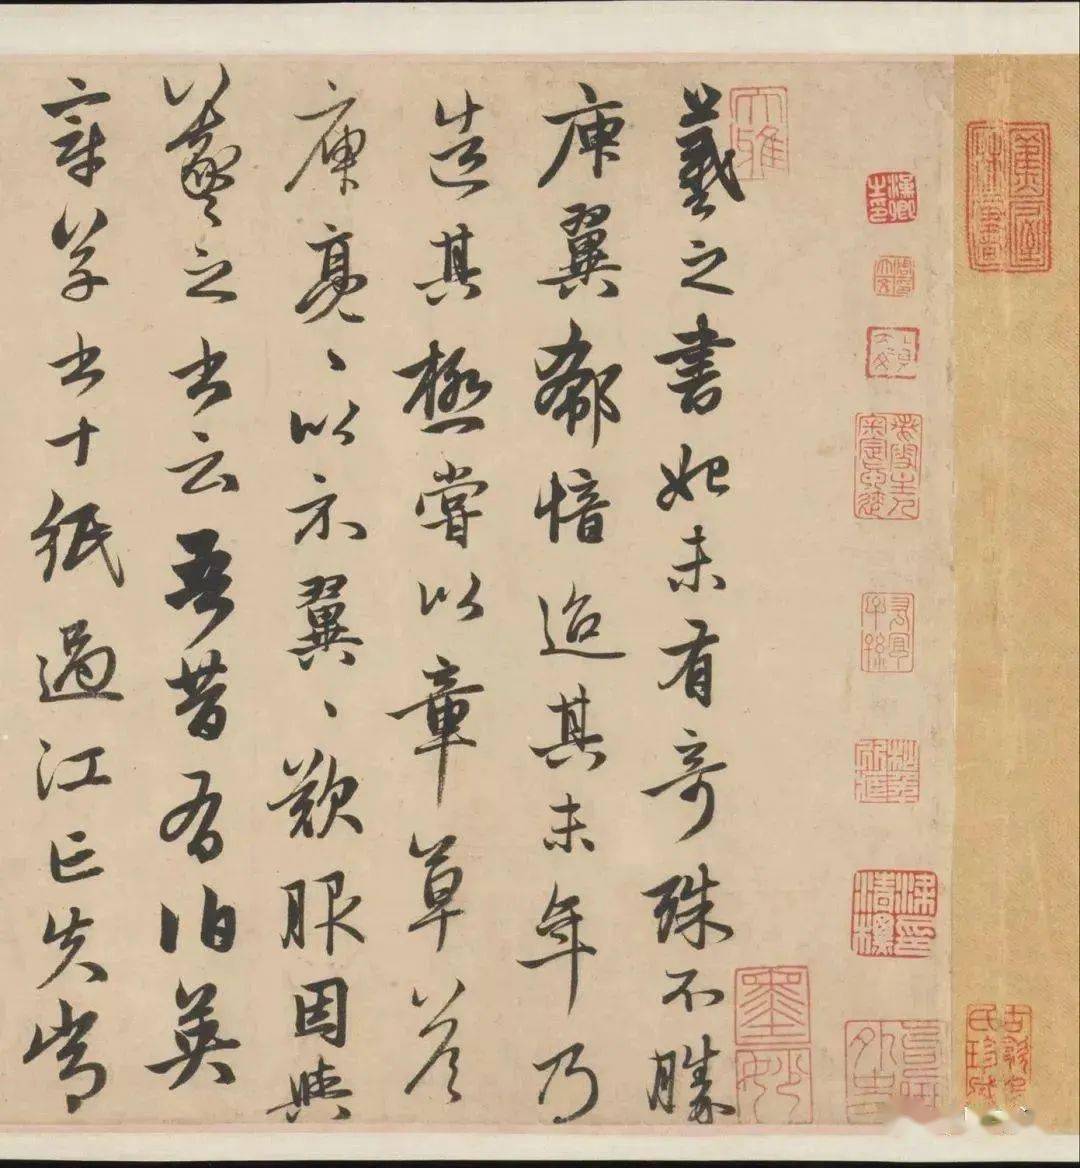 羲之書始未有奇殊不勝
庾翼郗愔迨其末年乃
造其極嘗以章草答
庾亮、以示翼、歎服因與
羲之書云吾昔有伯英
章草書十紙過江亡失常
大雅
墨妙